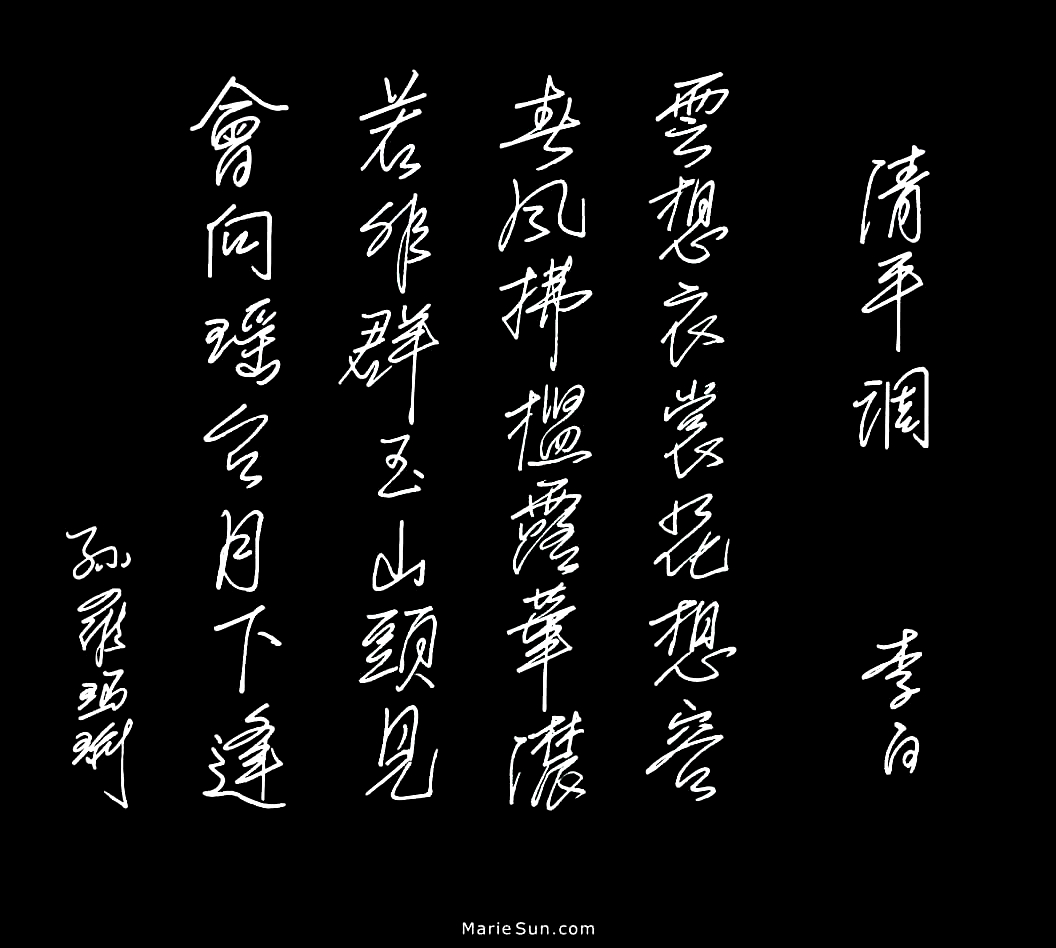 清平调 李白
雲想衣裳花想容
春風拂檻露華濃
若非群玉山頭見
會向瑶台月下逢
孫羅瑪琍
MarieSun.com